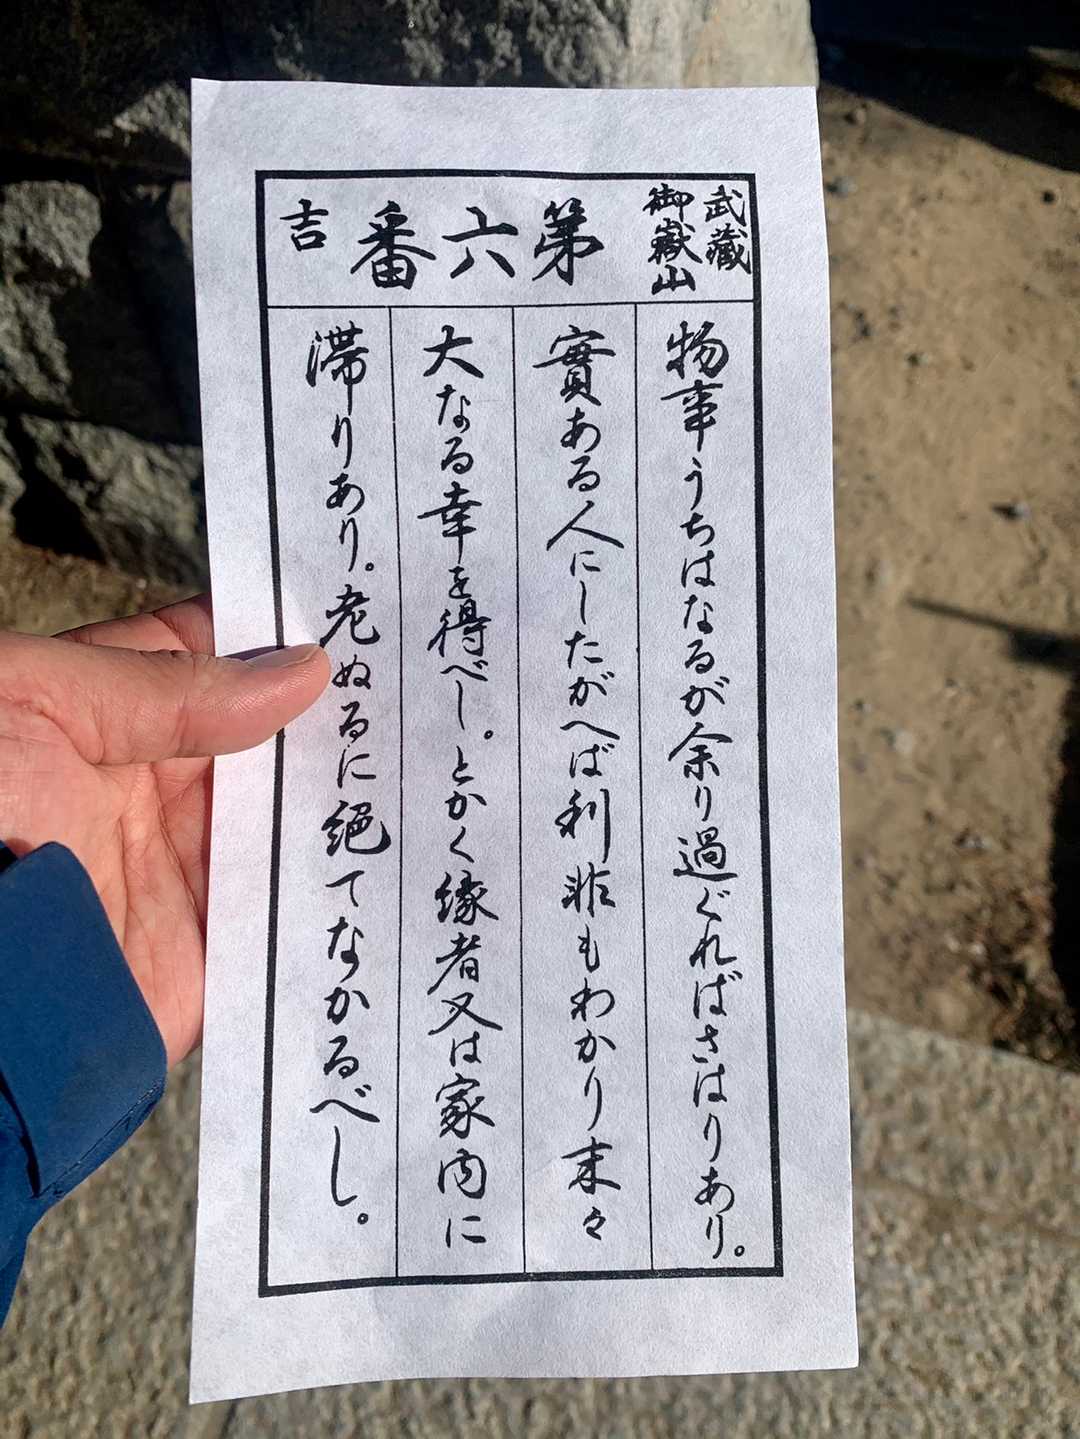 武蔵
御嶽山
第六番
吉
物事うちはなるが余り過ぐればさはりあり。
實ある人にしたがへば利非もわかり末々
大なる幸を得べし。とかく縁者又は家内に
滞りあり。老ぬるに絶てなかるべし。